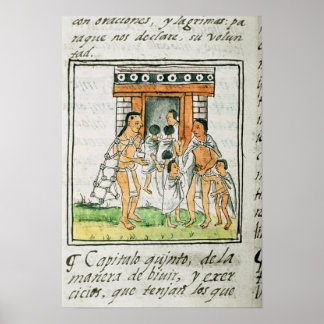 con oraciones, y lagrimas: pa
ra que nos declare, su volun
tad.
¶ Capitulo quinto, de la
manera de biuir, y exer
cicios, que tenjan los que